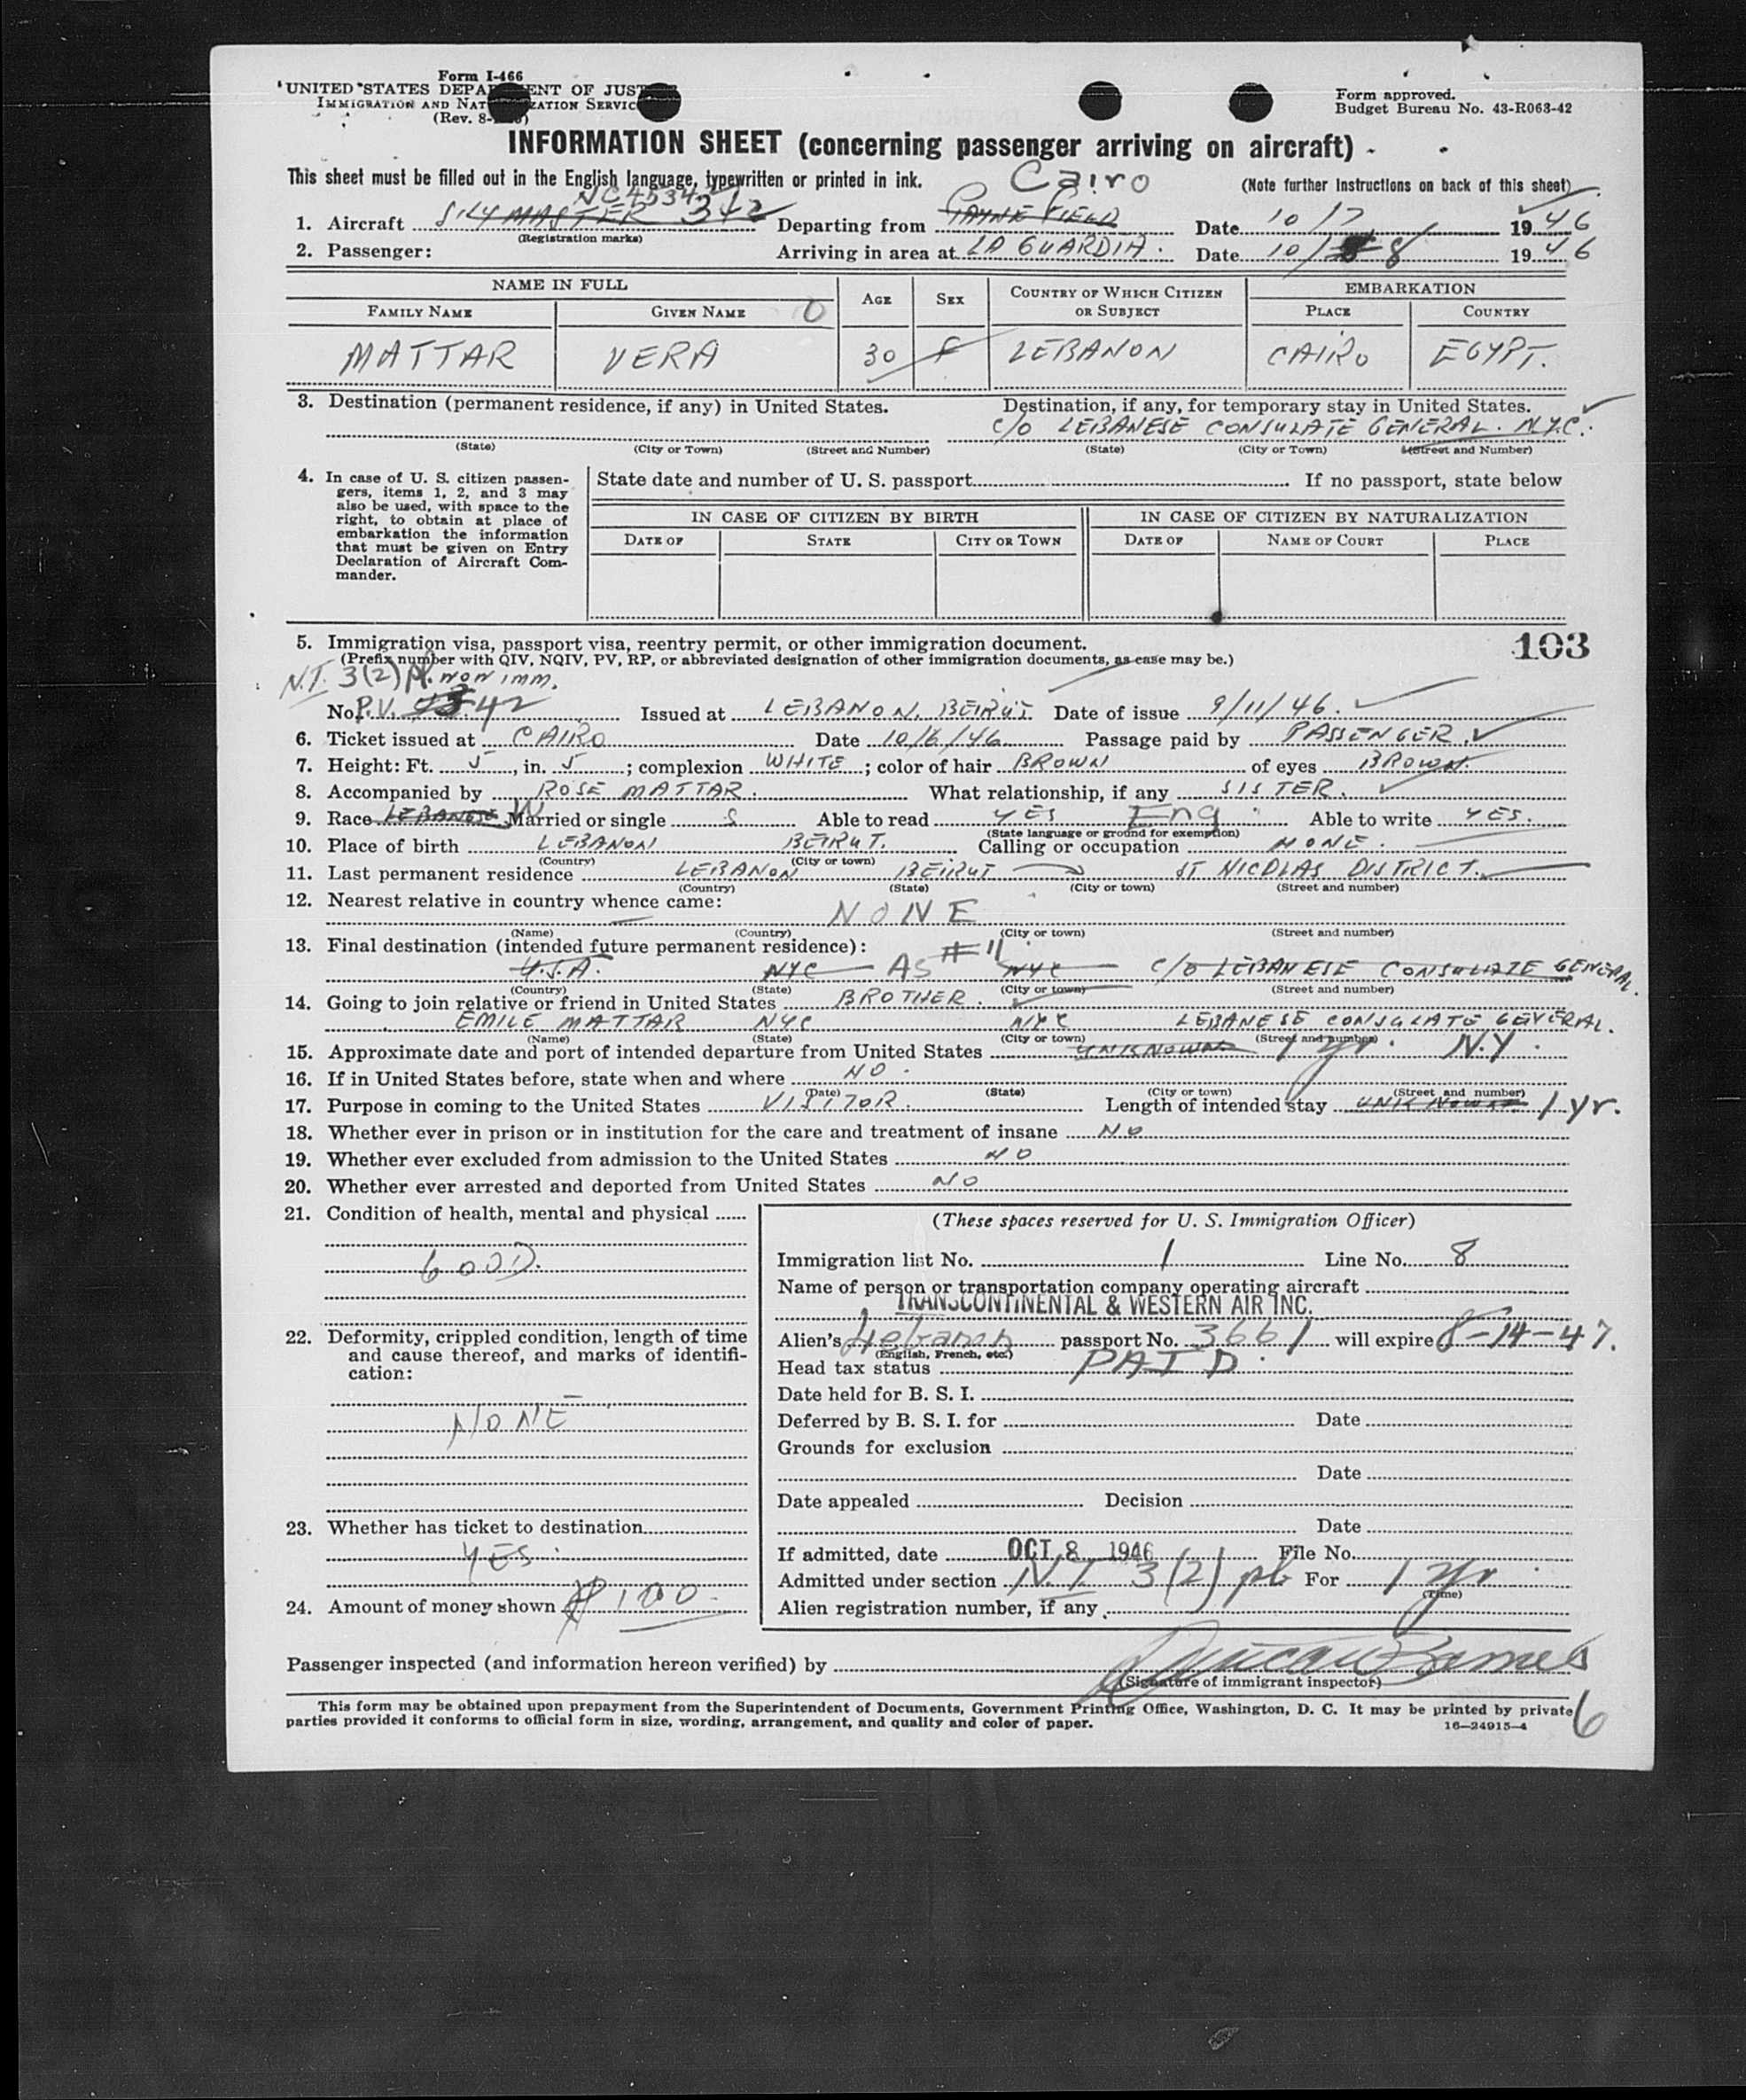 Form I-466
UNITED STATES DEPARTMENT OF JUSTICE
IMMIGRATION AND NATURALIZATION SERVICE
(Rev. 8-
Form approved.
Budget Bureau No. 43-R063-42
INFORMATION SHEET (concerning passenger arriving on aircraft)
This sheet must be filled out in the English language, typewritten or printed in ink.
Cairo
(Note further instructions on back of this sheet)
1. Aircraft SKYMASTER 342 Departing from PAYNE FIELD Date 10/7 1946
(Registration marks)
2. Passenger: Arriving in area at LA GUARDIA. Date 10/8 1946
NAME IN FULL AGE SEX COUNTRY OF WHICH CITIZEN OR SUBJECT EMBARKATION
FAMILY NAME GIVEN NAME 0 PLACE COUNTRY
MATTAR VERA 30 F LEBANON CAIRO EGYPT.
3. Destination (permanent residence, if any) in United States. Destination, if any, for temporary stay in United States.
C/O LEBANESE CONSULATE GENERAL. N.Y.C.
(State) (City or Town) (Street and Number) (State) (City or Town) (Street and Number)
4. In case of U. S. citizen passengers, items 1, 2, and 3 may also be used, with space to the right, to obtain at place of embarkation the information that must be given on Entry Declaration of Aircraft Commander.
State date and number of U. S. passport If no passport, state below
IN CASE OF CITIZEN BY BIRTH IN CASE OF CITIZEN BY NATURALIZATION
DATE OF STATE CITY OR TOWN DATE OF NAME OF COURT PLACE
103
5. Immigration visa, passport visa, reentry permit, or other immigration document.
(Prefix number with QIV, NQIV, PV, RP, or abbreviated designation of other immigration documents, as case may be.)
N.I. 3(2) pl. NON IMM.
No. P.V. 42 Issued at LEBANON. BEIRUT. Date of issue 9/11/46.
6. Ticket issued at CAIRO Date 10/6/46 Passage paid by PASSENGER.
7. Height: Ft. 5, in. 5; complexion WHITE; color of hair BROWN of eyes BROWN.
8. Accompanied by ROSE MATTAR. What relationship, if any SISTER.
9. Race LEBANESE W Married or single S Able to read YES Eng Able to write YES.
(State language or ground for exemption)
10. Place of birth LEBANON BEIRUT. Calling or occupation NONE.
(Country) (City or town)
11. Last permanent residence LEBANON BEIRUT ST NICOLAS DISTRICT.
(Country) (State) (City or town) (Street and number)
12. Nearest relative in country whence came:
NONE
(Name) (Country) (City or town) (Street and number)
13. Final destination (intended future permanent residence):
U.S.A. NYC AS #11 NYC C/O LEBANESE CONSULATE GENERAL.
(Country) (State) (City or town) (Street and number)
14. Going to join relative or friend in United States BROTHER.
EMILE MATTAR NYC NYC LEBANESE CONSULATE GENERAL.
(Name) (State) (City or town) (Street and number)
15. Approximate date and port of intended departure from United States UNKNOWN 1 yr. N.Y.
16. If in United States before, state when and where NO.
(Date) (State) (City or town) (Street and number)
17. Purpose in coming to the United States VISITOR. Length of intended stay UNKNOWN 1 yr.
18. Whether ever in prison or in institution for the care and treatment of insane NO
19. Whether ever excluded from admission to the United States NO
20. Whether ever arrested and deported from United States NO
21. Condition of health, mental and physical
GOOD.
22. Deformity, crippled condition, length of time and cause thereof, and marks of identification:
NONE
23. Whether has ticket to destination
YES.
24. Amount of money shown $100.
(These spaces reserved for U. S. Immigration Officer)
Immigration list No. 1 Line No. 8
Name of person or transportation company operating aircraft
TRANSCONTINENTAL & WESTERN AIR INC.
Alien's passport No. 3661 will expire 8-14-47.
(English, French, etc.)
Head tax status PAID.
Date held for B. S. I.
Deferred by B. S. I. for Date
Grounds for exclusion
Date
Date appealed Decision
Date
If admitted, date OCT 8 1946 File No.
Admitted under section N.I. 3(2) pb For 1 yr
(Time)
Alien registration number, if any
Passenger inspected (and information hereon verified) by
(Signature of immigrant inspector)
This form may be obtained upon prepayment from the Superintendent of Documents, Government Printing Office, Washington, D. C. It may be printed by private
parties provided it conforms to official form in size, wording, arrangement, and quality and color of paper.
16—24915-4
6